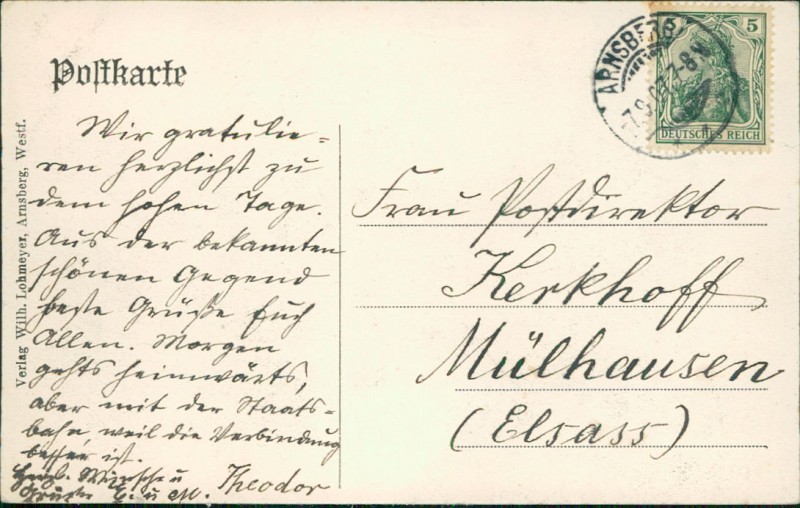 Postkarte
ARNSBERG
7.9.07.7-8N.
5 5
DEUTSCHES REICH
Verlag Wilh. Lohmeyer, Arnsberg, Westf.
Wir gratulie-
ren herzlichst zu
dem hohen Tage.
Aus der bekannten
schönen Gegend
beste Grüße Euch
Allen. Morgen
gehts heimwärts,
aber mit der Staats-
bahn, weil die Verbindung
besser ist.
Herzl. Wünsche u
Grüße E. u M. Theodor
Frau Postdirektor
Kerkhoff
Mülhausen
(Elsass)